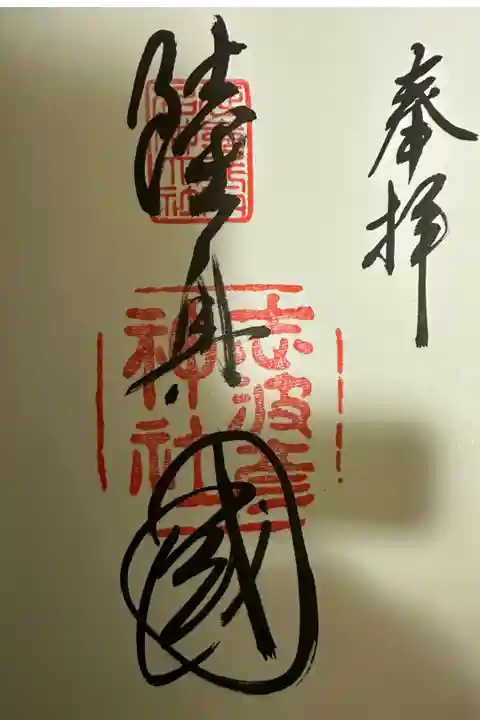 奉拝
陸奥國
志波彦
神社